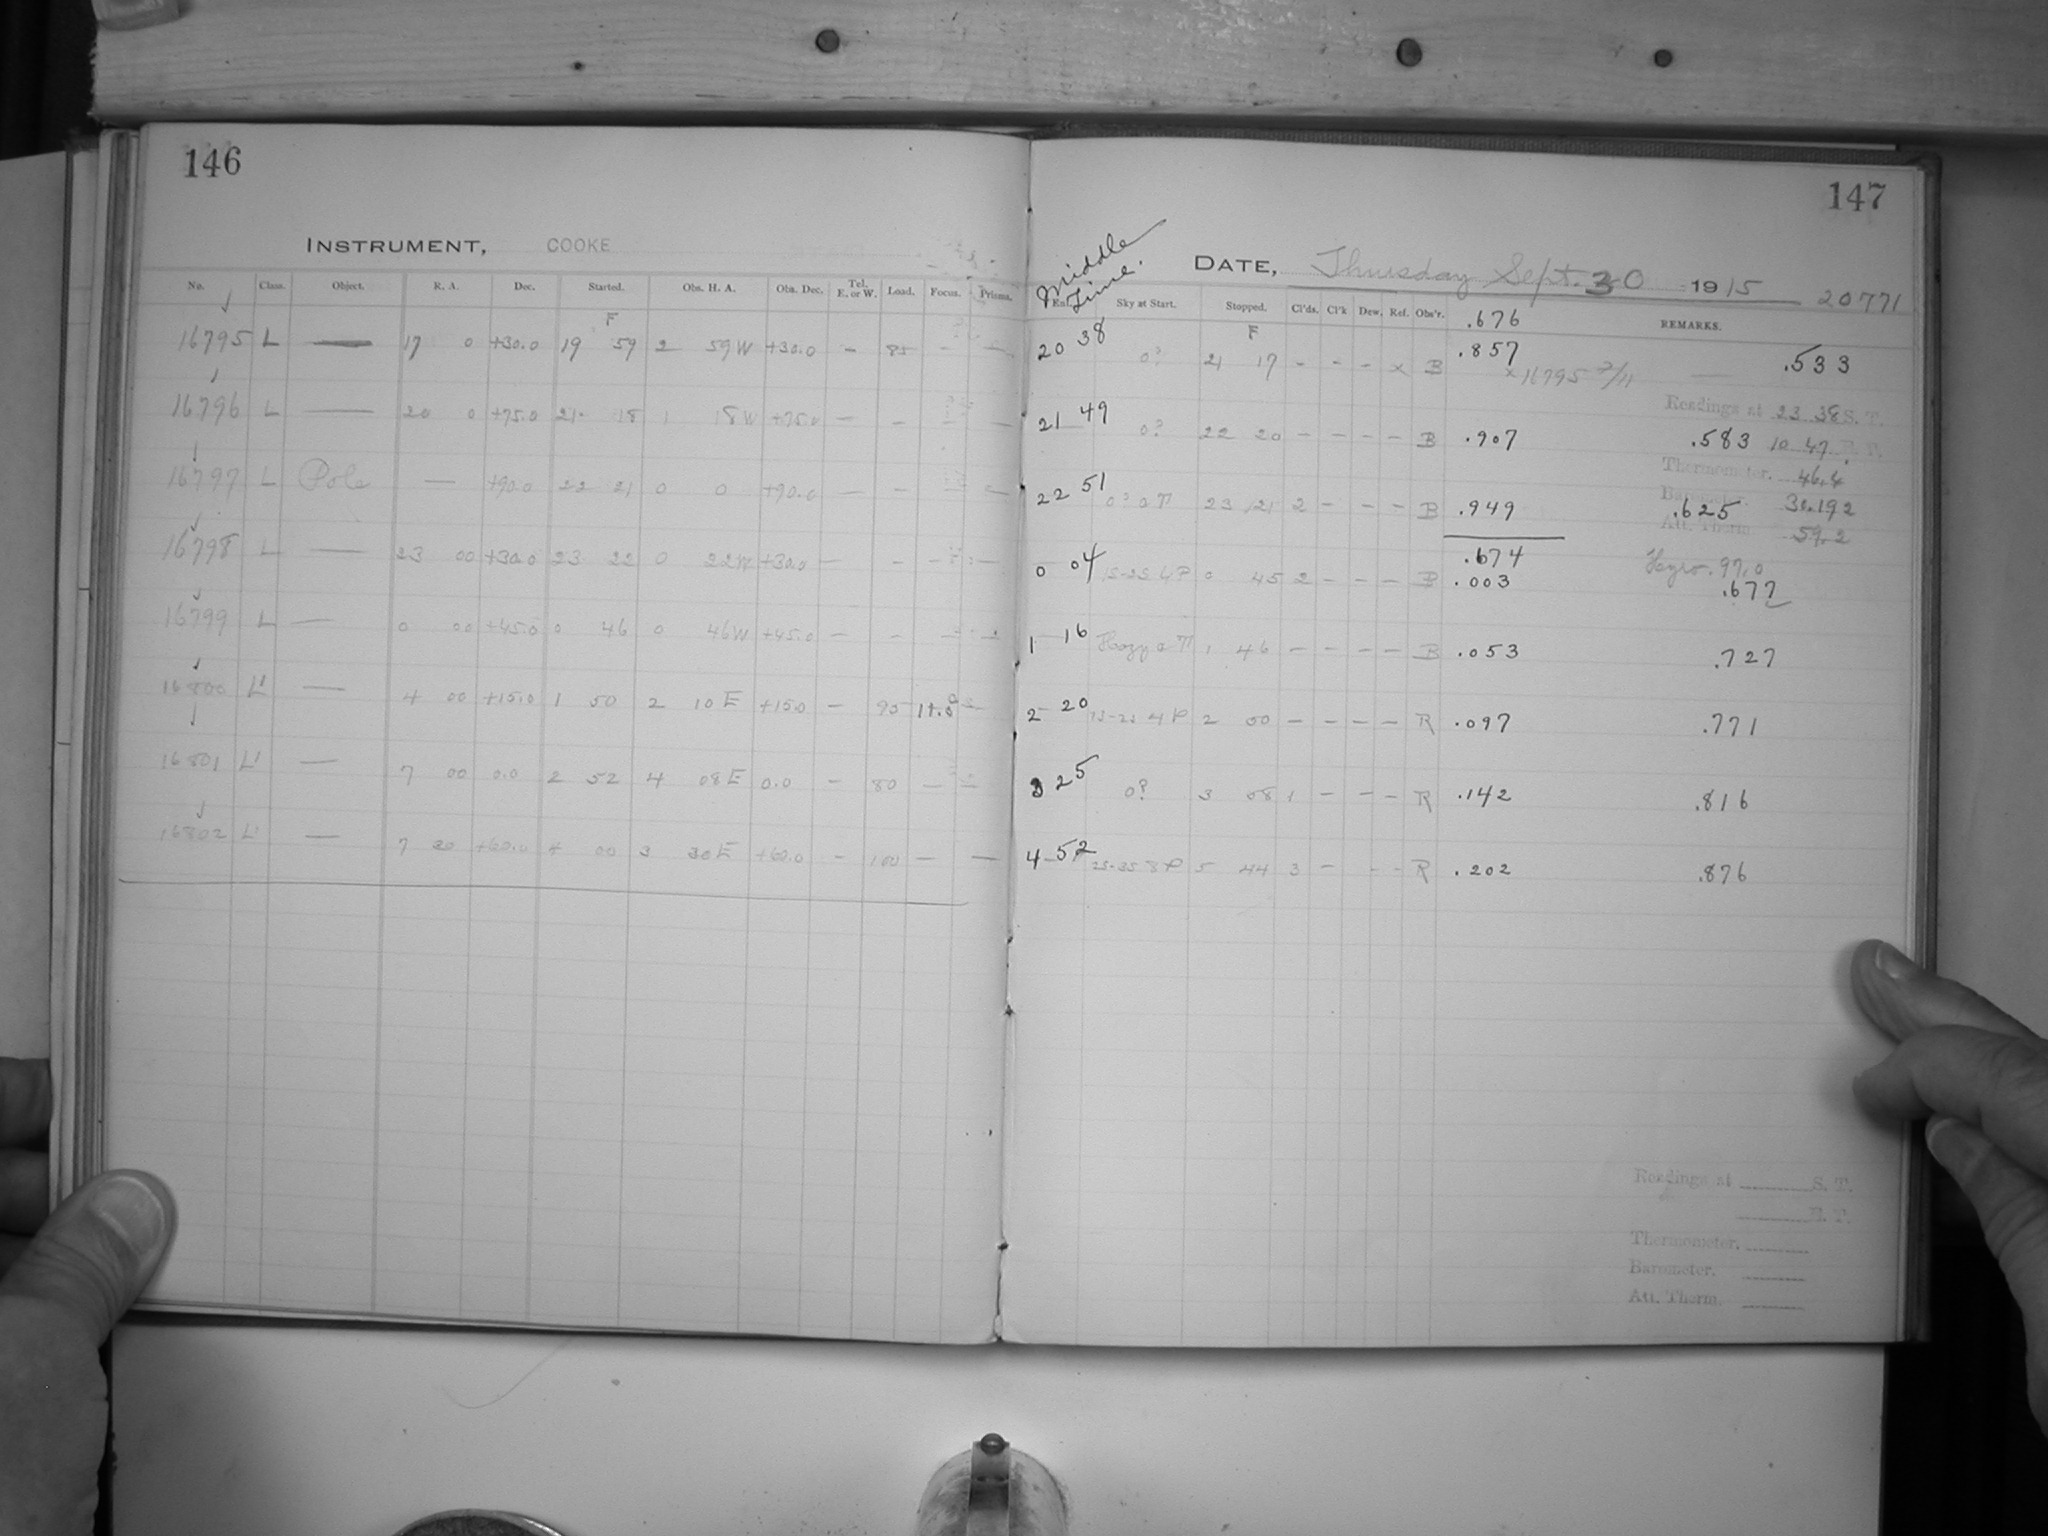 146
INSTRUMENT, COOKE
No. Class. Object. R. A. Dec. Started. Obs. H. A. Obs. Dec. Tel. E. or W. Load. Focus. Prisms.
F
16795 L — 17 0 +30.0 19 59 2 59W +30.0 — 85 — —
16796 L — 20 0 +75.0 21 18 1 18W +75.0 — — — —
16797 L Pole — +90.0 22 21 0 0 +90.0 — — — —
16798 L — 23 00 +30.0 23 22 0 22W +30.0 — — — —
16799 L — 0 00 +45.0 0 46 0 46W +45.0 — — —
16800 L' — 4 00 +15.0 1 50 2 10E +15.0 — 95 —
16801 L' — 7 00 0.0 2 52 4 08E 0.0 — 80 — —
16802 L' — 7 30 +60.0 4 00 3 30E +60.0 — 100 — —
147
Middle Time.
DATE, Thursday Sept. 30 1915 20771
Sky at Start. Stopped. Cl'ds. Cl'k Dew. Ref. Obs'r. .676 REMARKS.
F
20 38 0? 21 17 — — — x B .857 .533
x 16795
21 49 0? 22 20 — — — — B .907 .583
Readings at 23 38 S. T.
10 47 E. T.
Thermometer. 46.4
22 51 23 21 2 — — — B .949 .625
Barometer. 30.192
Att. Therm 59.2
.674
Hygro. 97.0
0 04 15-25 4P 0 45 2 — — — B .003 .677
1 16 Hazy 1 46 — — — — B .053 .727
2 20 15-25 4P 2 50 — — — — R .097 .771
3 25 0? 3 58 1 — — — R .142 .816
4 52 25-35 8P 5 44 3 — — — R .202 .876
Readings at S. T.
E. T.
Thermometer.
Barometer.
Att. Therm.